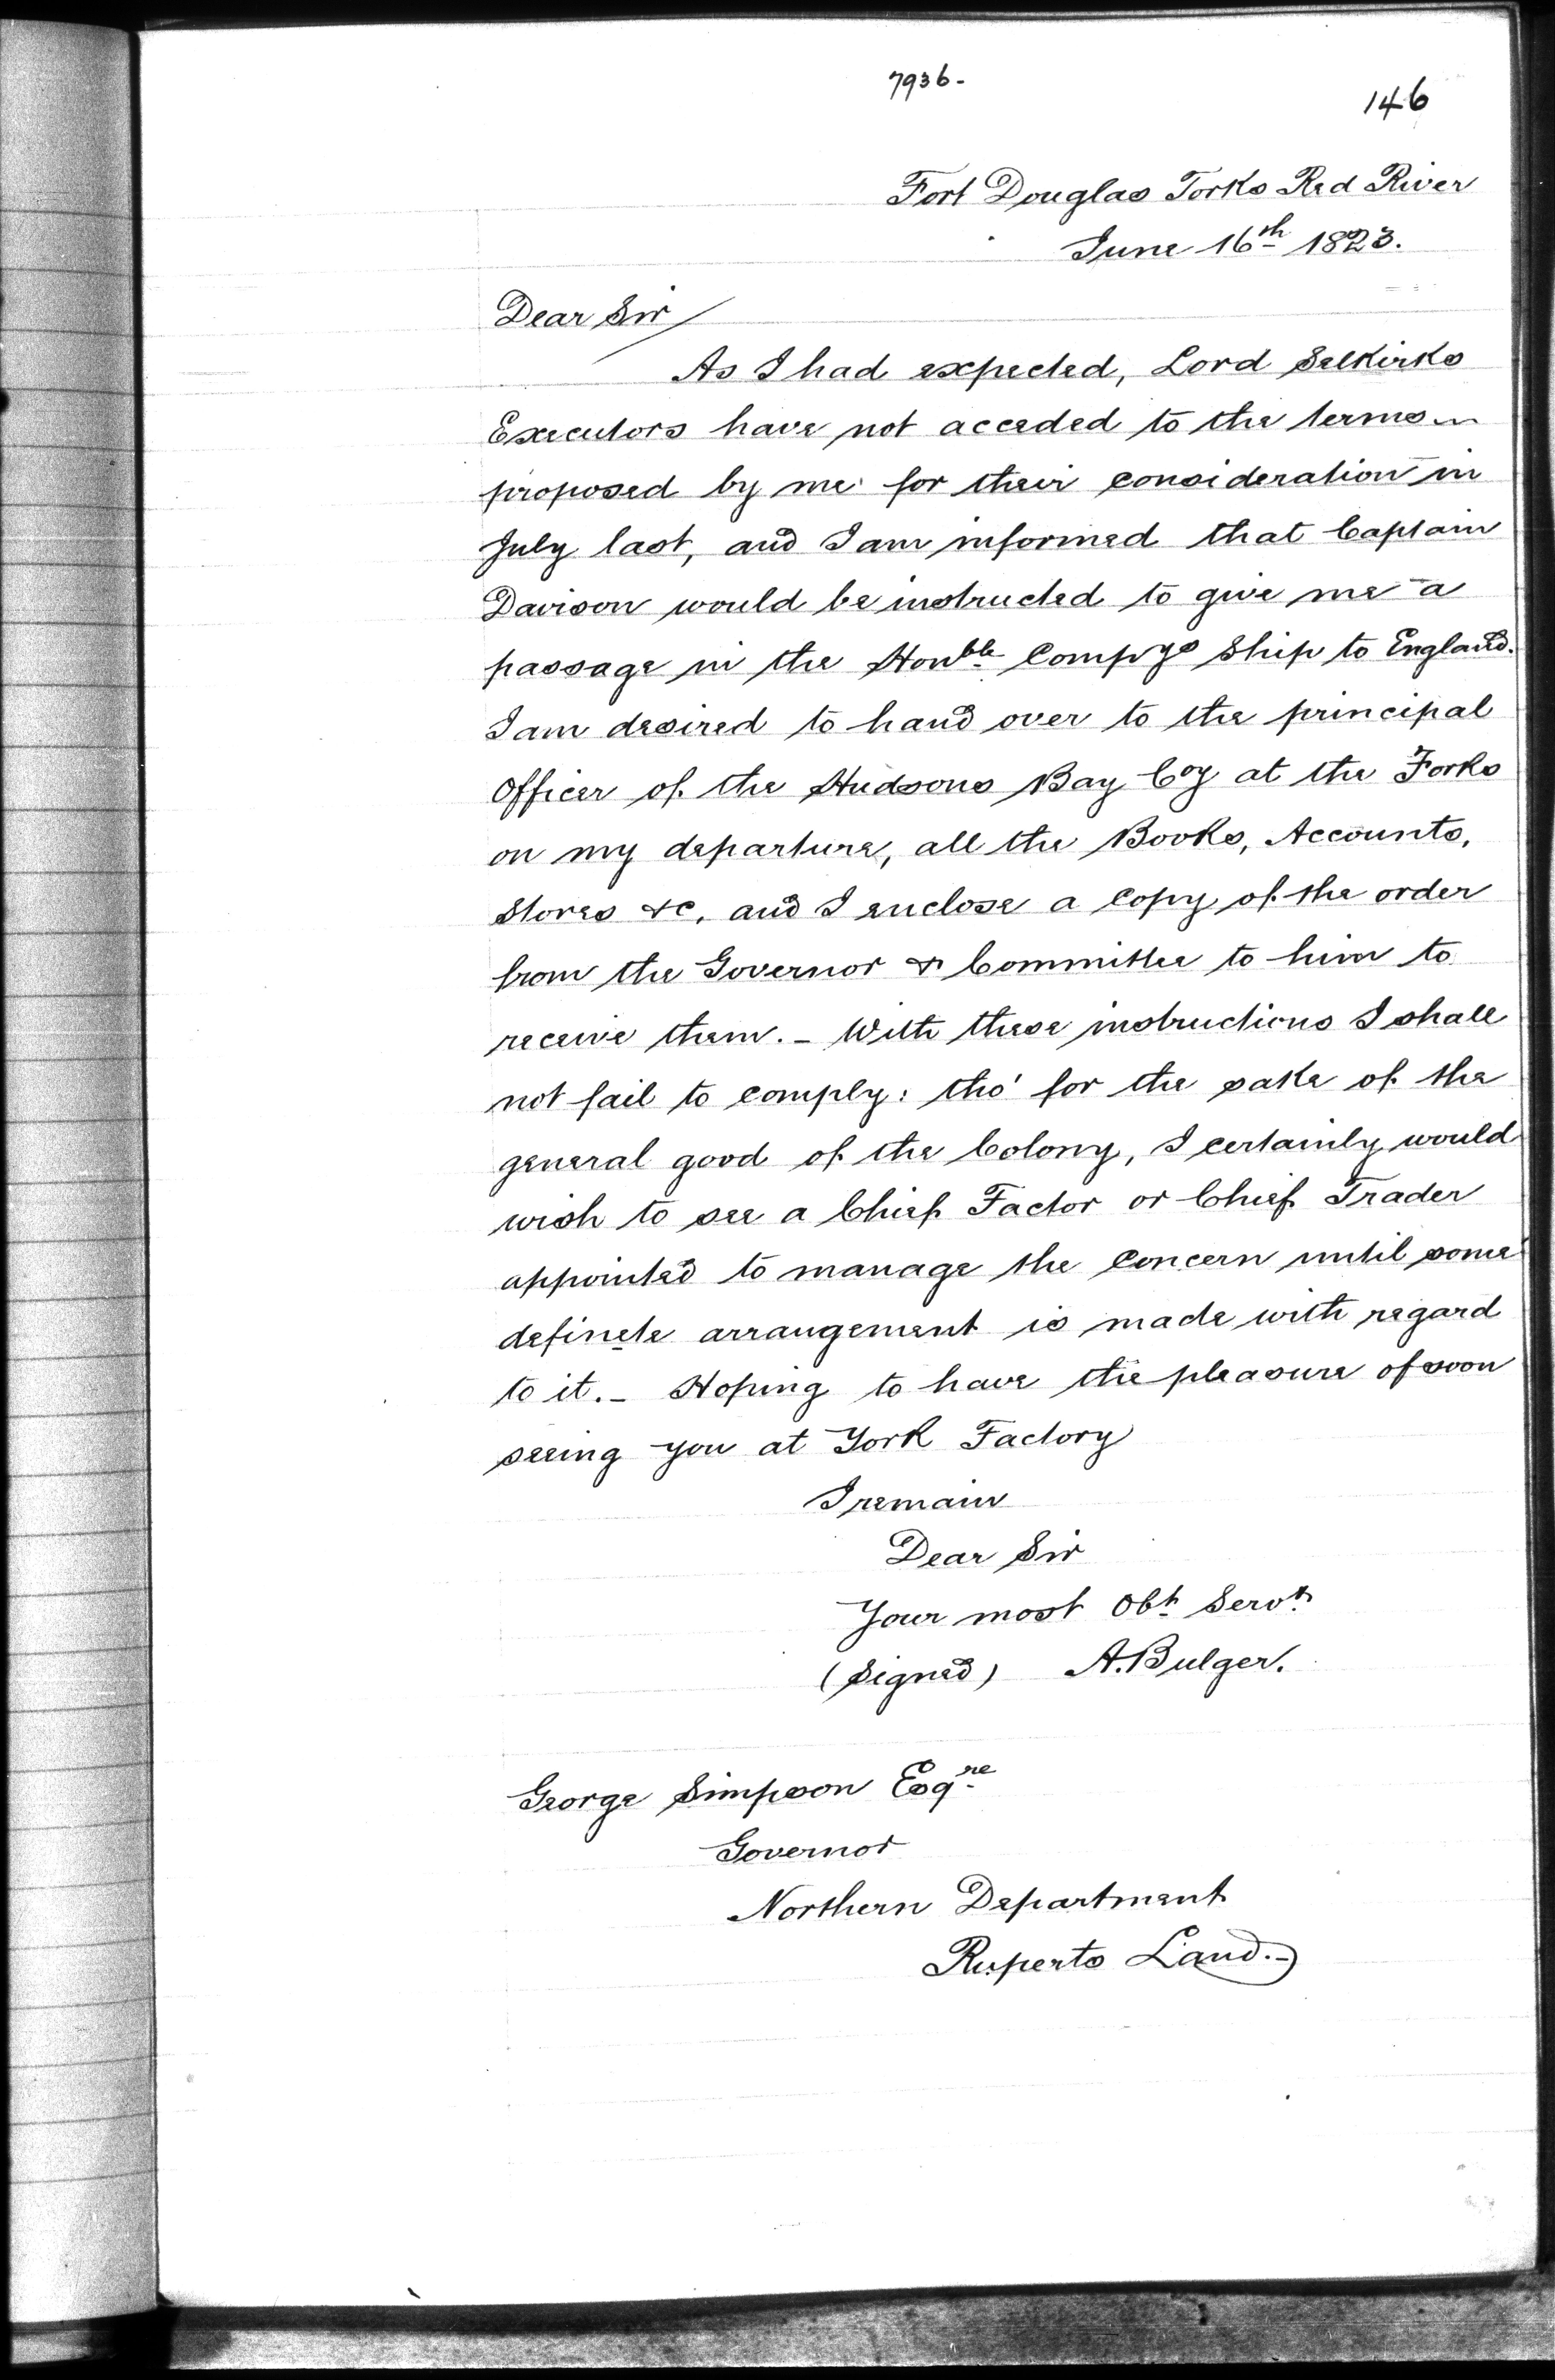 7936-
146
Fort Douglas Forks Red River
June 16th 1823.
Dear Sir
As I had expected, Lord Selkirks
Executors have not acceded to the terms
proposed by me for their consideration in
July last, and I am informed that Captain
Davison would be instructed to give me a
passage in the Honble Compys Ship to England.
I am desired to hand over to the principal
Officer of the Hudsons Bay Coy at the Forks
on my departure, all the Books, Accounts,
Stores &c. and I enclose a Copy of the order
from the Governor & Committee to him to
receive them. - With these instructions I shall
not fail to comply: tho' for the sake of the
general good of the Colony, I certainly would
wish to see a Chief Factor or Chief Trader
appointed to manage the Concern until some
definete arrangement is made with regard
to it. - Hoping to have the pleasure of soon
seeing you at York Factory
I remain
Dear Sir
Your most Obt Servt
(Signed) A. Bulger.
George Simpson Esqre
Governor
Northern Department
Ruperts Land. -